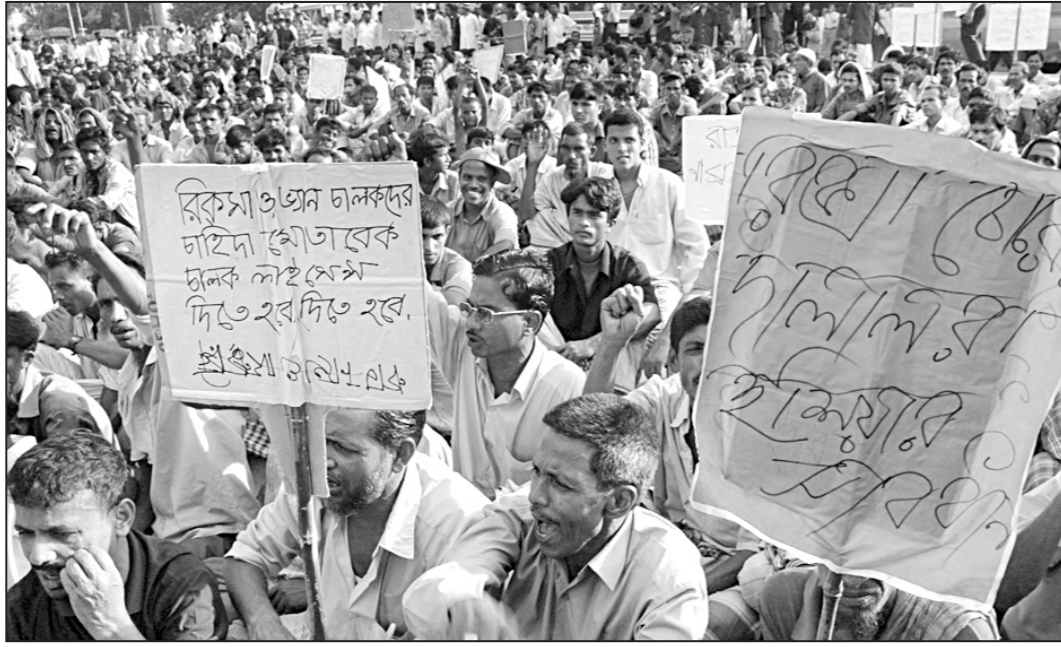 রিক্সা ও ভ্যান চালকদের
চাহিদা মোতাবেক
চালক লাইসেন্স
দিতে হবে দিতে হবে.
রিক্সা চোর
দালালরা
হুশিয়ার
সাবধান